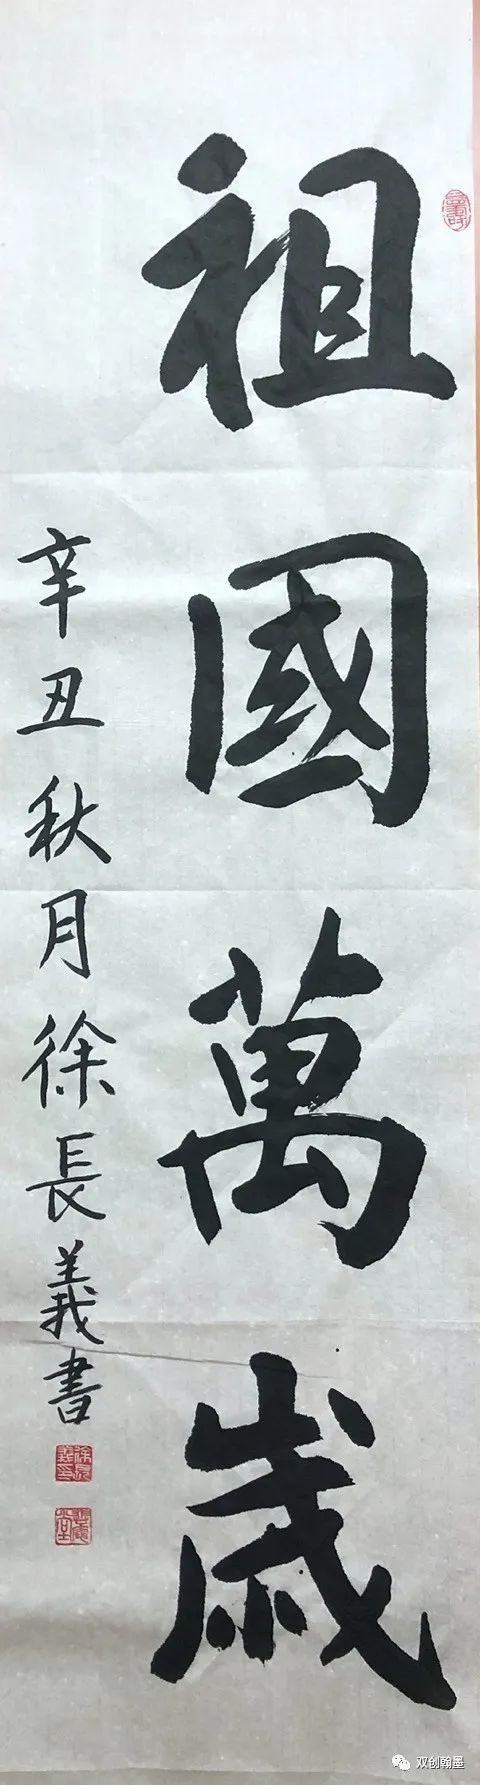 祖國萬歲
辛丑秋月徐長義書
双创翰墨